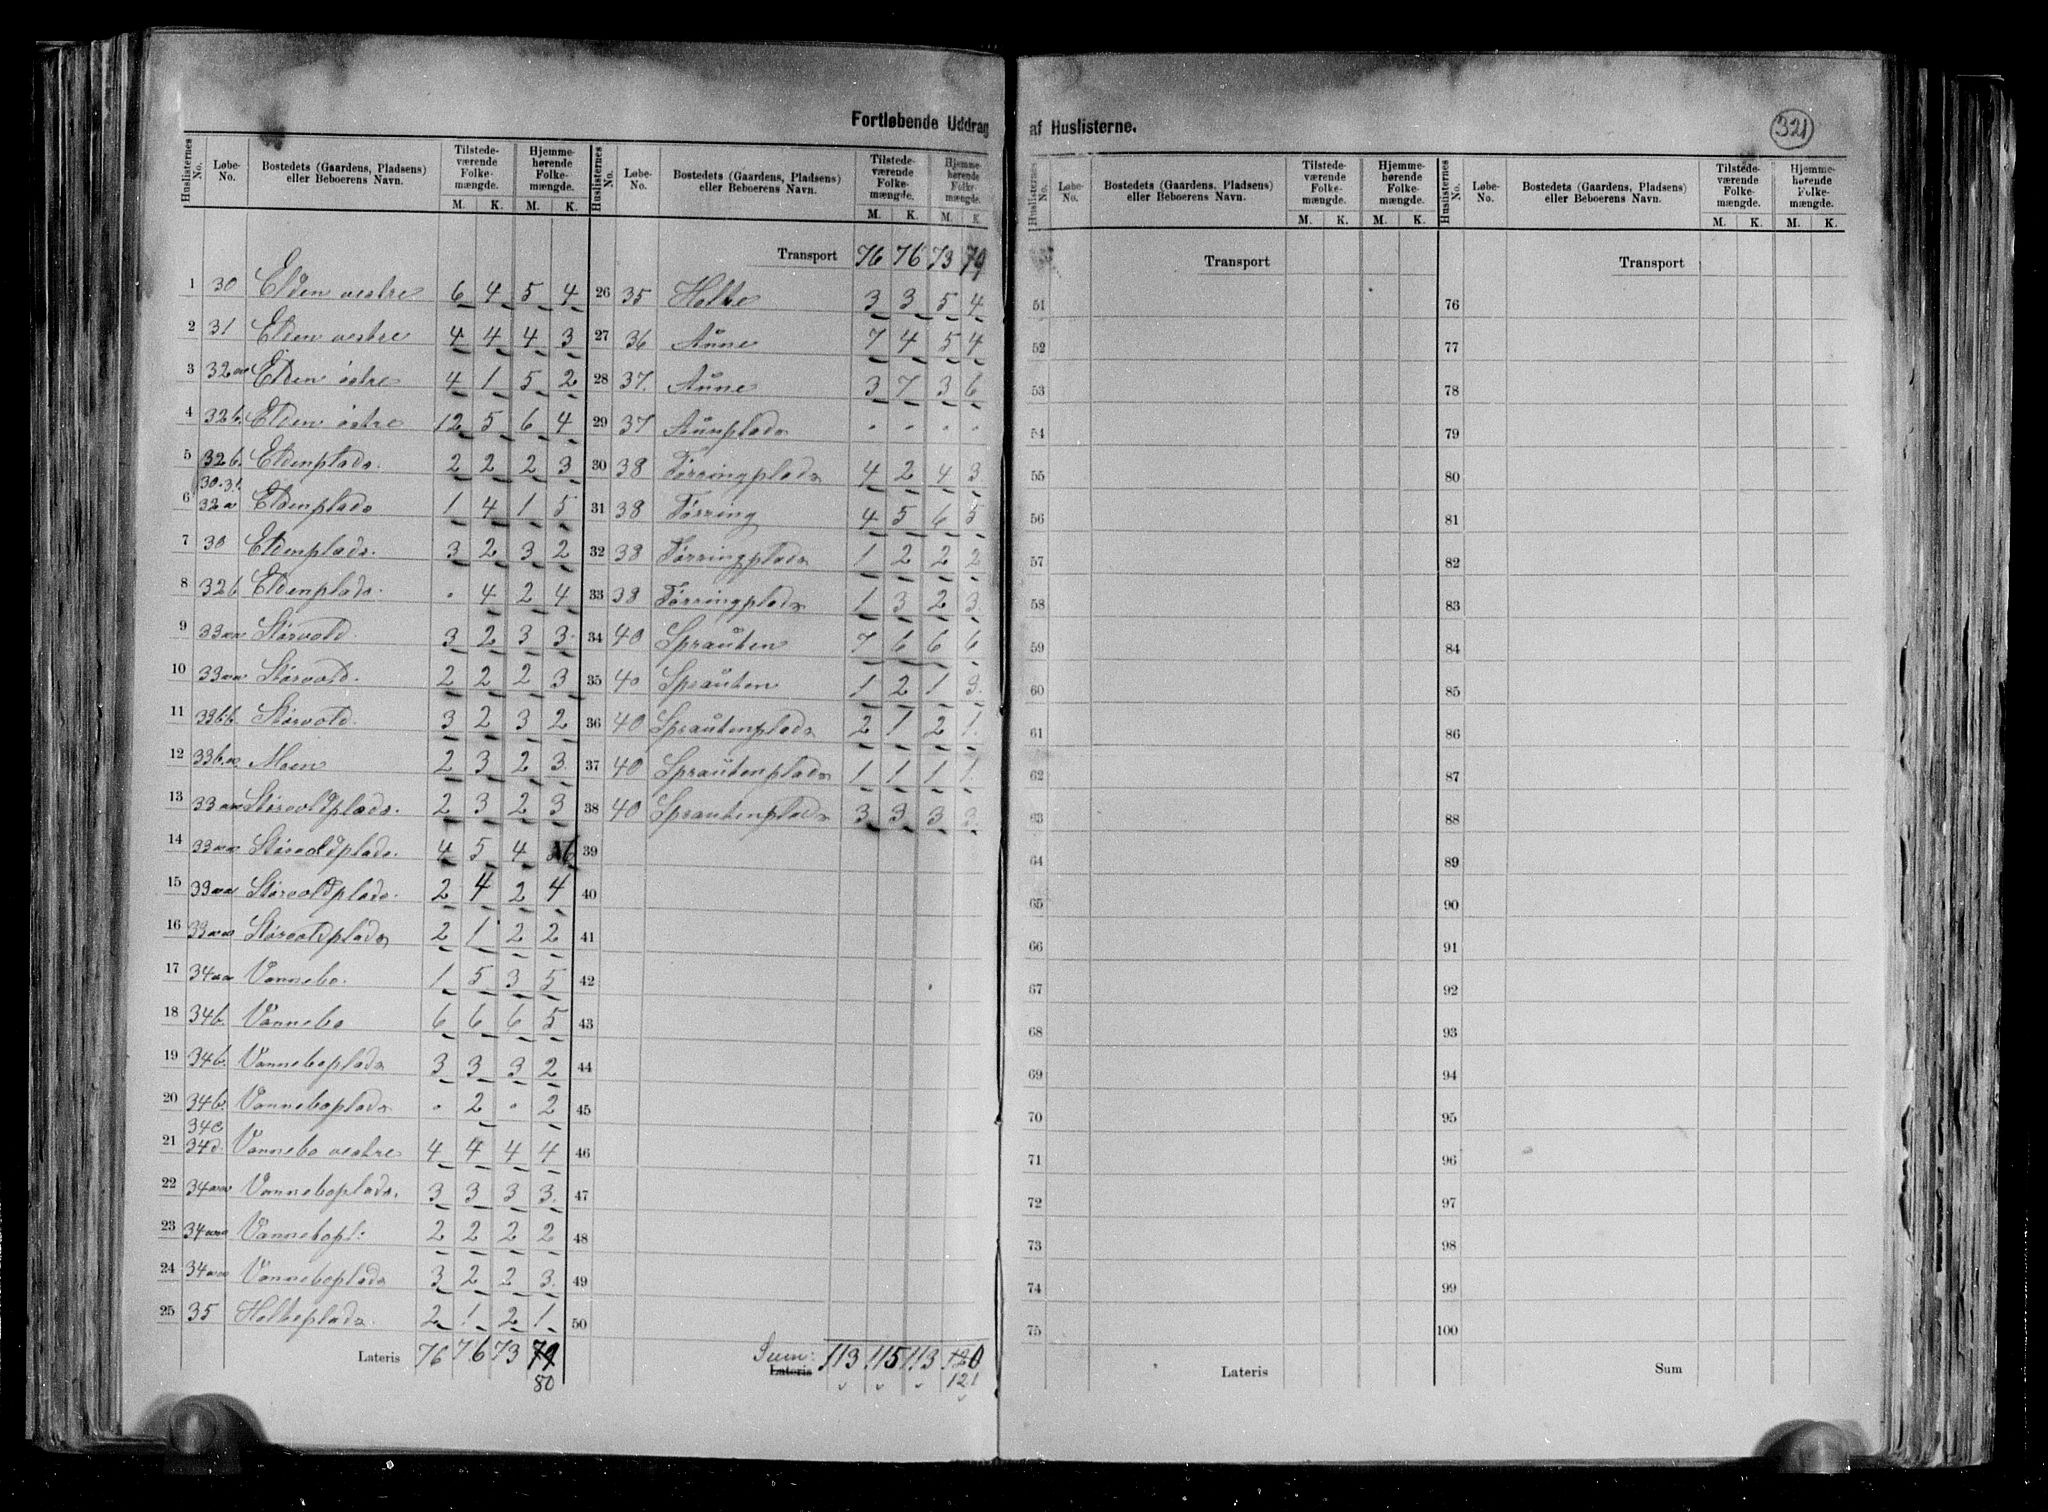 Fortløbende Uddrag af Huslisterne.
321
Huslisternes No. Løbe-No. Bostedets (Gaardens, Pladsens) eller Beboerens Navn. Tilstedeværende Folkemængde. M. K. Hjemmehørende Folkemængde. M. K.
1 30 Elden vestre 6 4 5 4
2 31 Elden vestre 4 4 4 3
3 32aa Elden østre 4 1 5 2
4 32b. Elden østre 12 5 6 4
5 32b. Eldenplads. 2 2 2 3
6 30.31. 32a Eldenplads 1 4 1 5
7 30 Eldenplads. 3 2 3 2
8 32b Eldenplads. . 4 2 4
9 33aa Størvold. 3 2 3 3
10 33aa Størvold. 2 2 2 3
11 33bb. Størvold. 3 2 3 2
12 33b.a. Moen 2 3 2 3
13 33aa Størvoldplads. 2 3 2 3
14 33aa Størvoldplads. 4 5 4 6
15 33aa Størvoldplads. 2 4 2 4
16 33aa Størvoldplads 2 1 2 2
17 34aa Vannebo. 1 5 3 5
18 34b. Vannebo 6 6 6 5
19 34b. Vanneboplads 3 3 3 2
20 34b. Vanneboplads . 2 . 2
21 34c 34d. Vannebo vestre 4 4 4 4
22 34aa Vanneboplads. 3 3 3 3.
23 34aa Vannebopl. 2 2 2 2
24 34aa Vanneboplads 3 2 2 3.
25 35 Holbeplads. 2 1 2 1
Lateris 76 76 73 79
80
Huslisternes No. Løbe-No. Bostedets (Gaardens, Pladsens) eller Beboerens Navn. Tilstedeværende Folkemængde. M. K. Hjemmehørende Folkemængde. M. K.
Transport 76 76 73 79
26 35 Holbe 3 3 5 4
27 36 Aune 7 4 5 4
28 37. Aune 3 7 3 6
29 37 Aunplads . . . .
30 38 Tørringplads 4 2 4 3
31 38 Tørring 4 5 6 5
32 38 Tørringplads 1 2 2 2
33 38 Tørringplads 1 3 2 3.
34 40 Sprauten 7 6 6 6
35 40 Sprauten 1 2 1 3.
36 40 Sprautenplads 2 1 2 1.
37 40 Sprautenplads 1 1 1 1.
38 40 Sprautenplads 3 3 3 3.
39
40
41
42
43
44
45
46
47
48
49
50
Sum: Lateris 113 115 113 120
121
Huslisternes No. Løbe-No. Bostedets (Gaardens, Pladsens) eller Beboerens Navn. Tilstedeværende Folkemængde. M. K. Hjemmehørende Folkemængde. M. K.
Transport
51
52
53
54
55
56
57
58
59
60
61
62
63
64
65
66
67
68
69
70
71
72
73
74
75
Lateris
Huslisternes No. Løbe-No. Bostedets (Gaardens, Pladsens) eller Beboerens Navn. Tilstedeværende Folkemængde. M. K. Hjemmehørende Folkemængde. M. K.
Transport
76
77
78
79
80
81
82
83
84
85
86
87
88
89
90
91
92
93
94
95
96
97
98
99
100
Sum